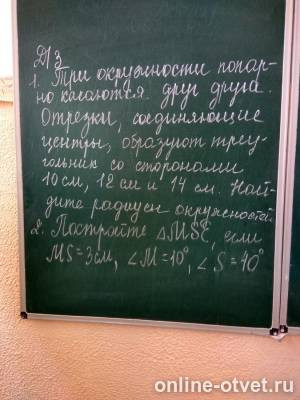 ДЗ
1. Три окружности попар-
но касаются друг друга.
Отрезки, соединяющие
центры, образуют треу-
гольник со сторонами
10 см, 12 см и 14 см. Най-
дите радиусы окружностей.
2. Постройте △MSE, если
MS = 3 см, ∠M = 10°, ∠S = 40°
online-otvet.ru